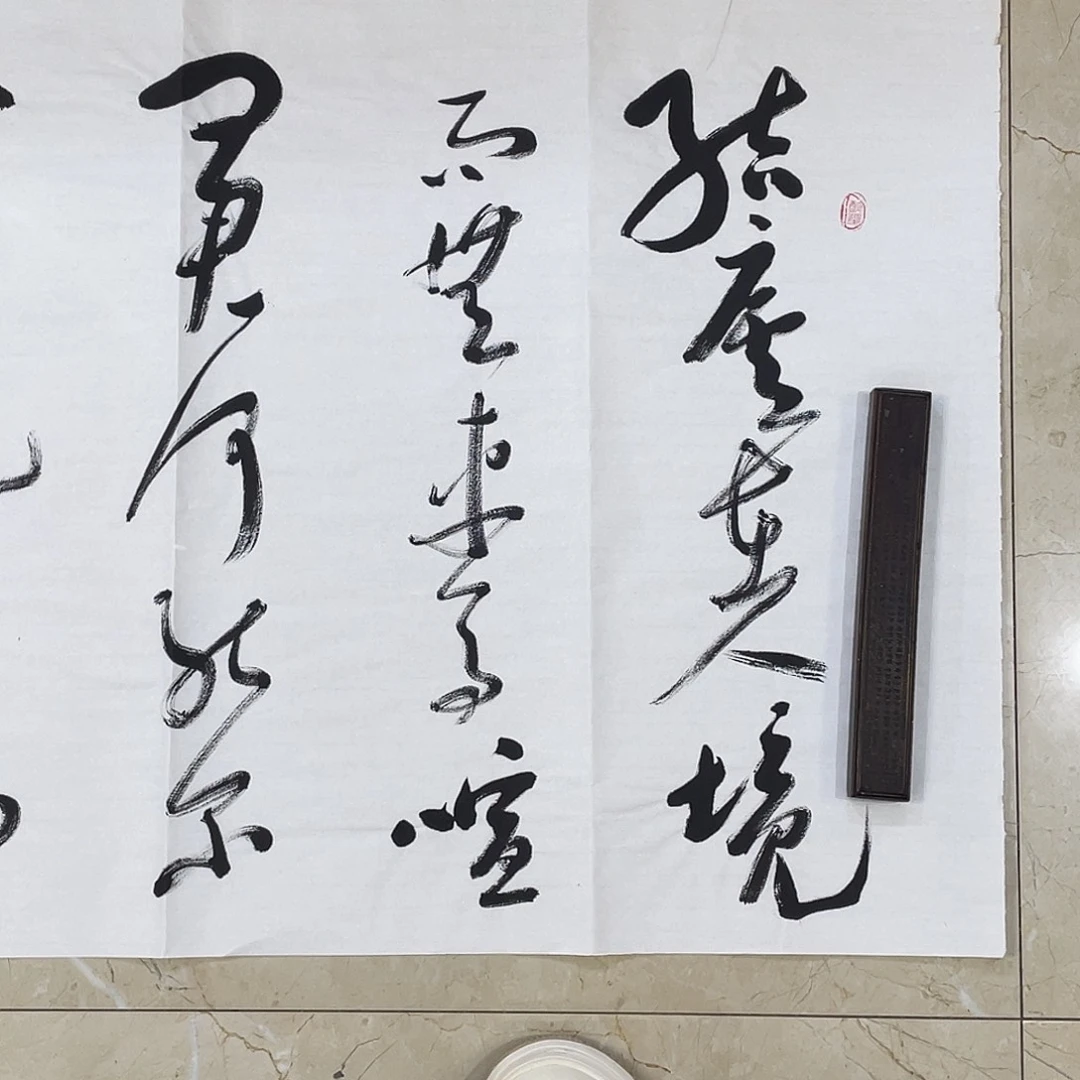 結廬在人境
而無車馬喧
問君何能尔